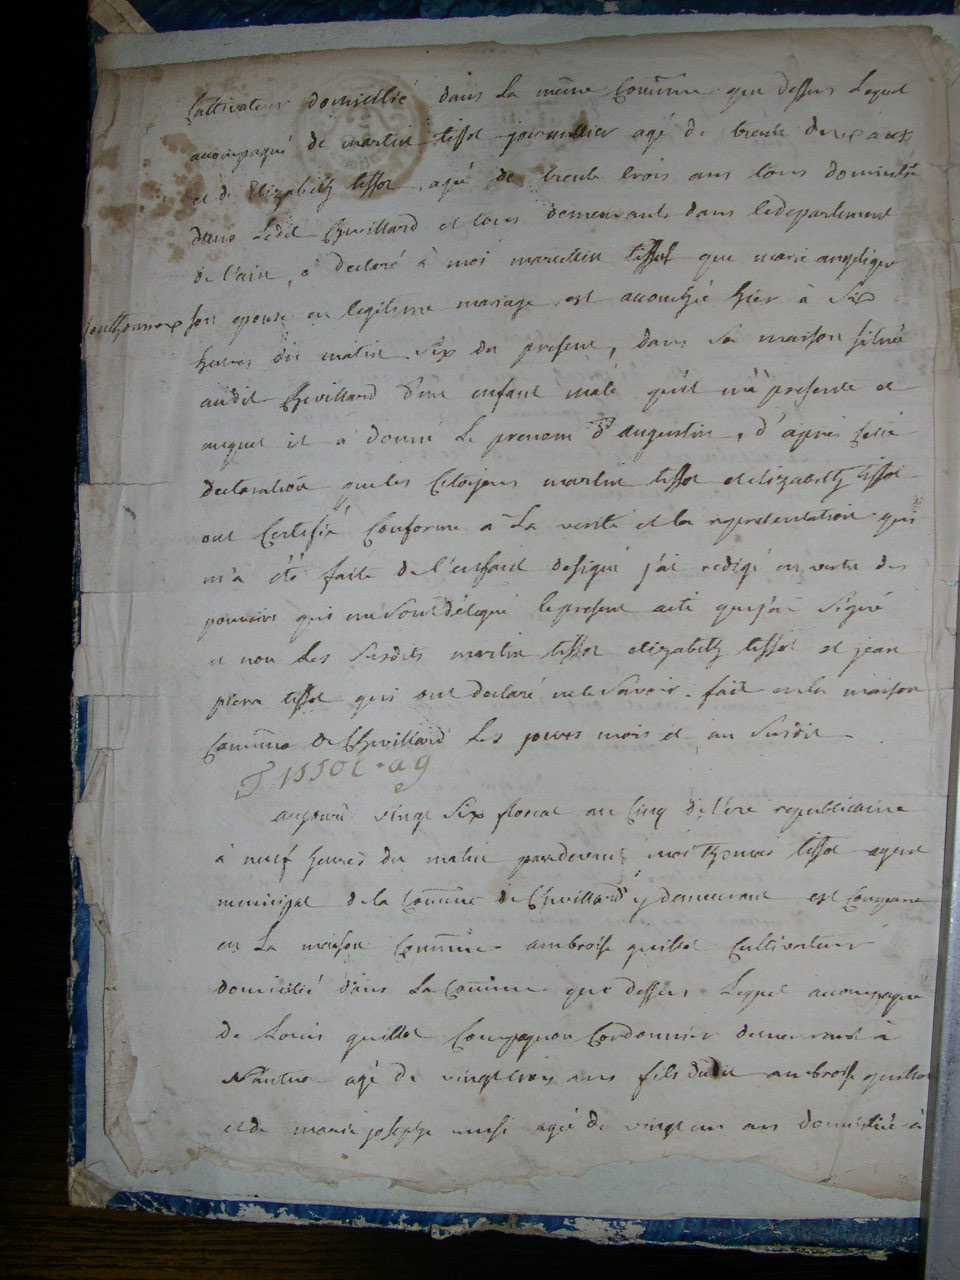 Cultivateur domicilié dans La mẽme Com̃une que dessus Lequel
accompagné de martin tissot journallier agé de trente deux ans
et de Elizabeth tissot, agé de trente trois ans tous domicilié
dans Ledit Chevillard et tous demeurants dans ledepartement
de l'ain, a declaré à moi marcellin tissot que marie angelique
son epouse en legitime mariage est accouchée hier à Six
heures du matin Six du present, dans Sa maison situé
audit Chevillard d'un enfant male qu'il m'a presenté et
auquel il a donné Le prenom d'augustin, d'apres cette
declaration que les Citoyens martin tissot et elizabeth tissot
ont Certifié Conforme a La verité et la representation qui
m'a été faite de l'enfant designé j'ai redigé en vertu des
pouvoirs qui me Sont délegué le present acte que j'ai Signé
et non Les Susdits martin tissot elizabeth tissot et jean
pierre tissot qui ont declaré ne le Savoir. fait en la maison
Com̃une de Chevillard Les jours mois et an Susdit
Tissot ag
aujourd vingt Six floreal an Cinq de l'ere republicaine
à neuf heures du matin pardevant moi thomas tissot agent
municipal de la Com̃une de Chevillard y demeurant est Comparu
en La maison Com̃une ambroise guillot Cultivateur
domicilié dans La Com̃une que dessus Lequel accompagné
de Louis guillot Compagnon Cordonnier demeurant à
Nantua agé de vingt trois ans fils dudit ambroise guillot
et de marie josephe agé de vingt un ans domicilié à